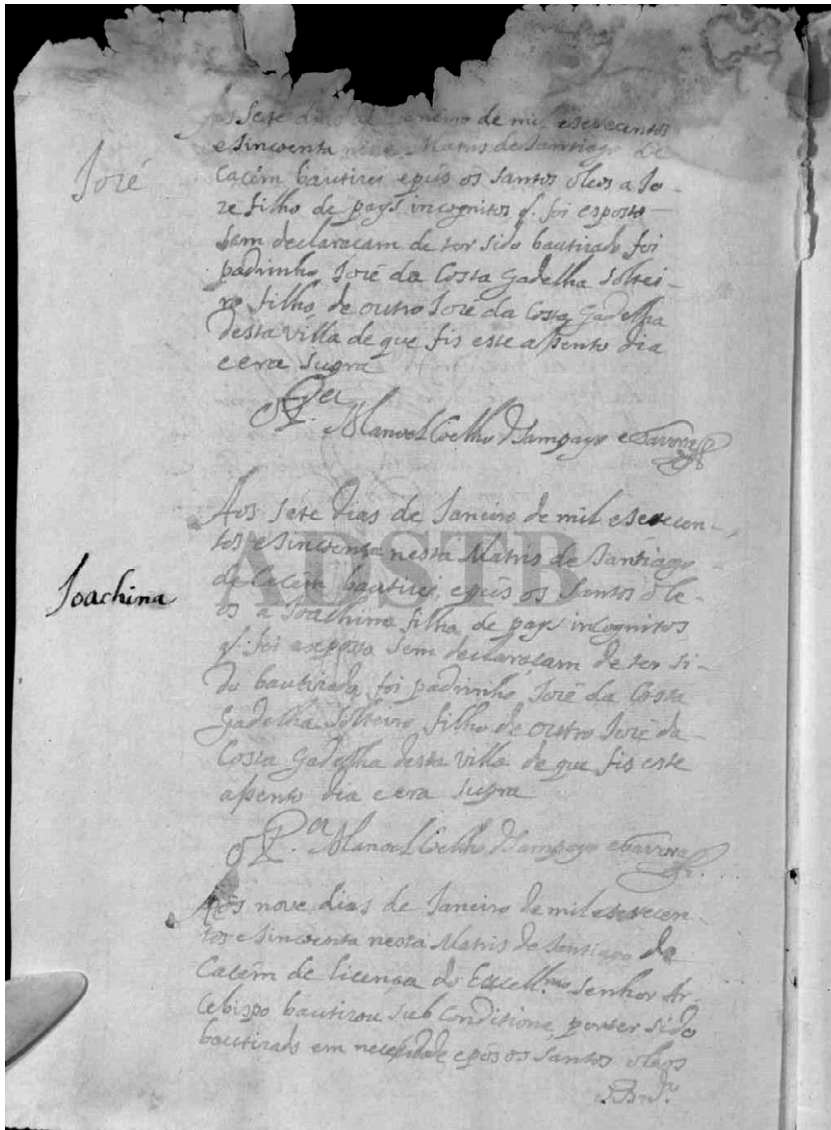 Aos Sete dias de Janeiro de mil e setecentos
e Sincoenta nesta Matris de Santiago de
José
Cacém bautizei, e pús os Santos óleos a Jo-
zé filho de pays incognitos q. foi esposto
sem declaraçam de ter sido bautizado foi
padrinho José da Costa Gadelha soltei-
ro filho de outro José da Costa Gadelha
desta villa de que fis este asento dia
e era Supra
Manoel Coelho d Sampayo e Tavora
Aos sete dias de Janeiro de mil e setecen-
tos e Sincoenta nesta Matris de Santiago
ADSTB
de Cacém bautizei, e pús os Santos óle-
Joachina
os a Joachina filha de pays incognitos
q. foi esposta sem declaraçam de ter si-
do bautizada foi padrinho José da Costa
Gadelha Solteiro filho de outro José da
Costa Gadelha desta villa de que fis este
asento dia e era Supra
Manoel Coelho d Sampayo e Tavora
Aos nove dias de Janeiro de mil e setecen-
tos e Sincoenta nesta Matris de Santiago de
Cacém de licença do Excell.mo Senhor Ar-
cebispo bautizou sub conditione por ter sido
bautizado em necessidade e pôs os Santos óleos